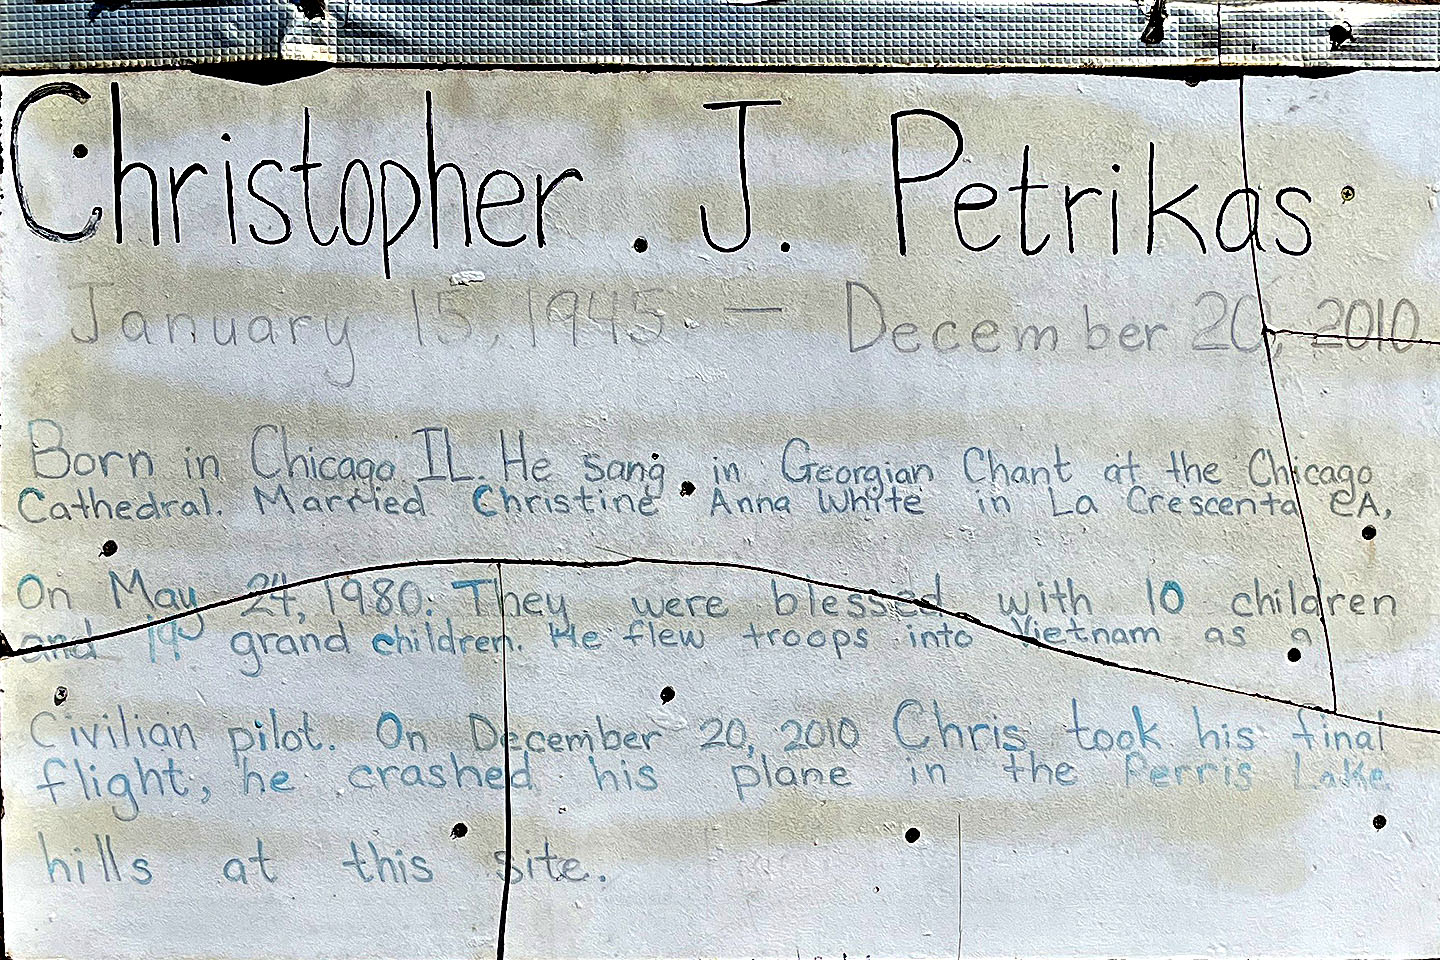 Christopher. J. Petrikas
January 15, 1945. — December 20, 2010
Born in Chicago IL. He sang in Georgian Chant at the Chicago
Cathedral. Married Christine Anna White in La Crescenta CA,
On May 24, 1980. They were blessed with 10 children
and 19 grand children. He flew troops into Vietnam as a
Civilian pilot. On December 20, 2010 Chris took his final
flight, he crashed his plane in the Perris Lake
hills at this site.